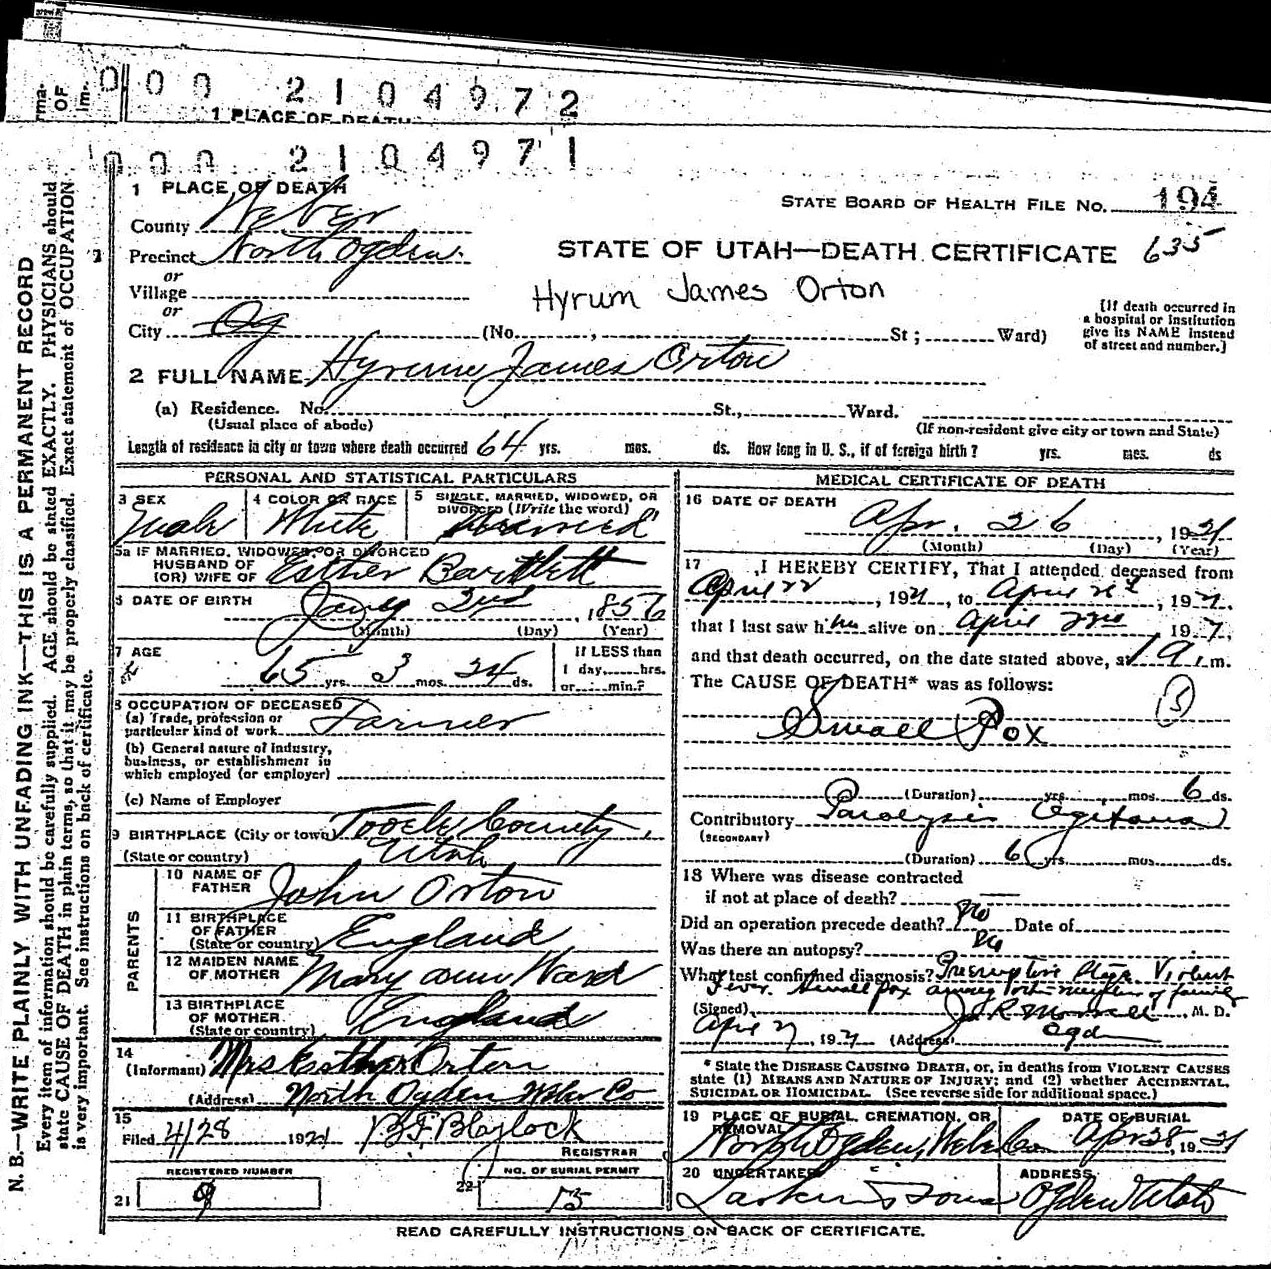 0 0 0 2 1 0 4 9 7 2
1 PLACE OF DEATH
0 0 0 2 1 0 4 9 7 1
N. B.—WRITE PLAINLY WITH UNFADING INK—THIS IS A PERMANENT RECORD
Every item of information should be carefully supplied. AGE should be stated EXACTLY. PHYSICIANS should
state CAUSE OF DEATH in plain terms, so that it may be properly classified. Exact statement of OCCUPATION
is very important. See instructions on back of certificate.
1 PLACE OF DEATH
County Weber
Precinct North Ogden
or
Village
or
City Og
STATE BOARD OF HEALTH FILE No. 194
STATE OF UTAH—DEATH CERTIFICATE 635
Hyrum James Orton
(No. , St ; Ward)
[If death occurred in
a hospital or institution
give its NAME instead
of street and number.]
2 FULL NAME Hyrum James Orton
(a) Residence. No. St., Ward.
(Usual place of abode) (If non-resident give city or town and State)
Length of residence in city or town where death occurred 64 yrs. mos. ds. How long in U. S., if of foreign birth? yrs. mes. ds
PERSONAL AND STATISTICAL PARTICULARS
3 SEX Male
4 COLOR OR RACE White
5 SINGLE, MARRIED, WIDOWED, OR
DIVORCED (Write the word)
Married
5a IF MARRIED, WIDOWED, OR DIVORCED
HUSBAND OF
(OR) WIFE OF Esther Bartlett
6 DATE OF BIRTH Jany 2nd, 1856
(Month) (Day) (Year)
7 AGE
65 yrs. 3 mos. 24 ds.
If LESS than
1 day, hrs.
or min.?
8 OCCUPATION OF DECEASED
(a) Trade, profession or
particular kind of work Farmer
(b) General nature of industry,
business, or establishment in
which employed (or employer)
(c) Name of Employer
9 BIRTHPLACE (City or town) Tooele County,
(State or country) Utah
PARENTS
10 NAME OF
FATHER John Orton
11 BIRTHPLACE
OF FATHER
(State or country) England
12 MAIDEN NAME
OF MOTHER Mary Ann Ward
13 BIRTHPLACE
OF MOTHER
(State or country) England
14
(Informant) Mrs Esther Orton
(Address) North Ogden Weber Co
15
Filed 4/28 1921 B F Blaylock
REGISTRAR
REGISTERED NUMBER
21 9
NO. OF BURIAL PERMIT
22 15
MEDICAL CERTIFICATE OF DEATH
16 DATE OF DEATH
Apr. 26, 1921
(Month) (Day) (Year)
17 I HEREBY CERTIFY, That I attended deceased from
April 22, 1921, to April, 192
that I last saw him alive on April 22nd 192
and that death occurred, on the date stated above, at m.
The CAUSE OF DEATH* was as follows:
5
Small Pox
(Duration) yrs. mos. 6 ds.
Contributory Paralysis Agitans
(SECONDARY)
(Duration) 6 yrs. mos. ds.
18 Where was disease contracted
if not at place of death?
Did an operation precede death? No Date of
Was there an autopsy? No
What test confirmed diagnosis? Presumptive Violent
fever. Small Pox among other members of family
(Signed) Morrell M. D.
Apr 27, 192 (Address) Ogden
* State the DISEASE CAUSING DEATH, or, in deaths from VIOLENT CAUSES
state (1) MEANS AND NATURE OF INJURY; and (2) whether ACCIDENTAL,
SUICIDAL OR HOMICIDAL. (See reverse side for additional space.)
19 PLACE OF BURIAL, CREMATION, OR
REMOVAL
North Ogden, Weber Co
DATE OF BURIAL
Apr 28, 1921
20 UNDERTAKER
Larkin & Sons
ADDRESS
Ogden Utah
READ CAREFULLY INSTRUCTIONS ON BACK OF CERTIFICATE.